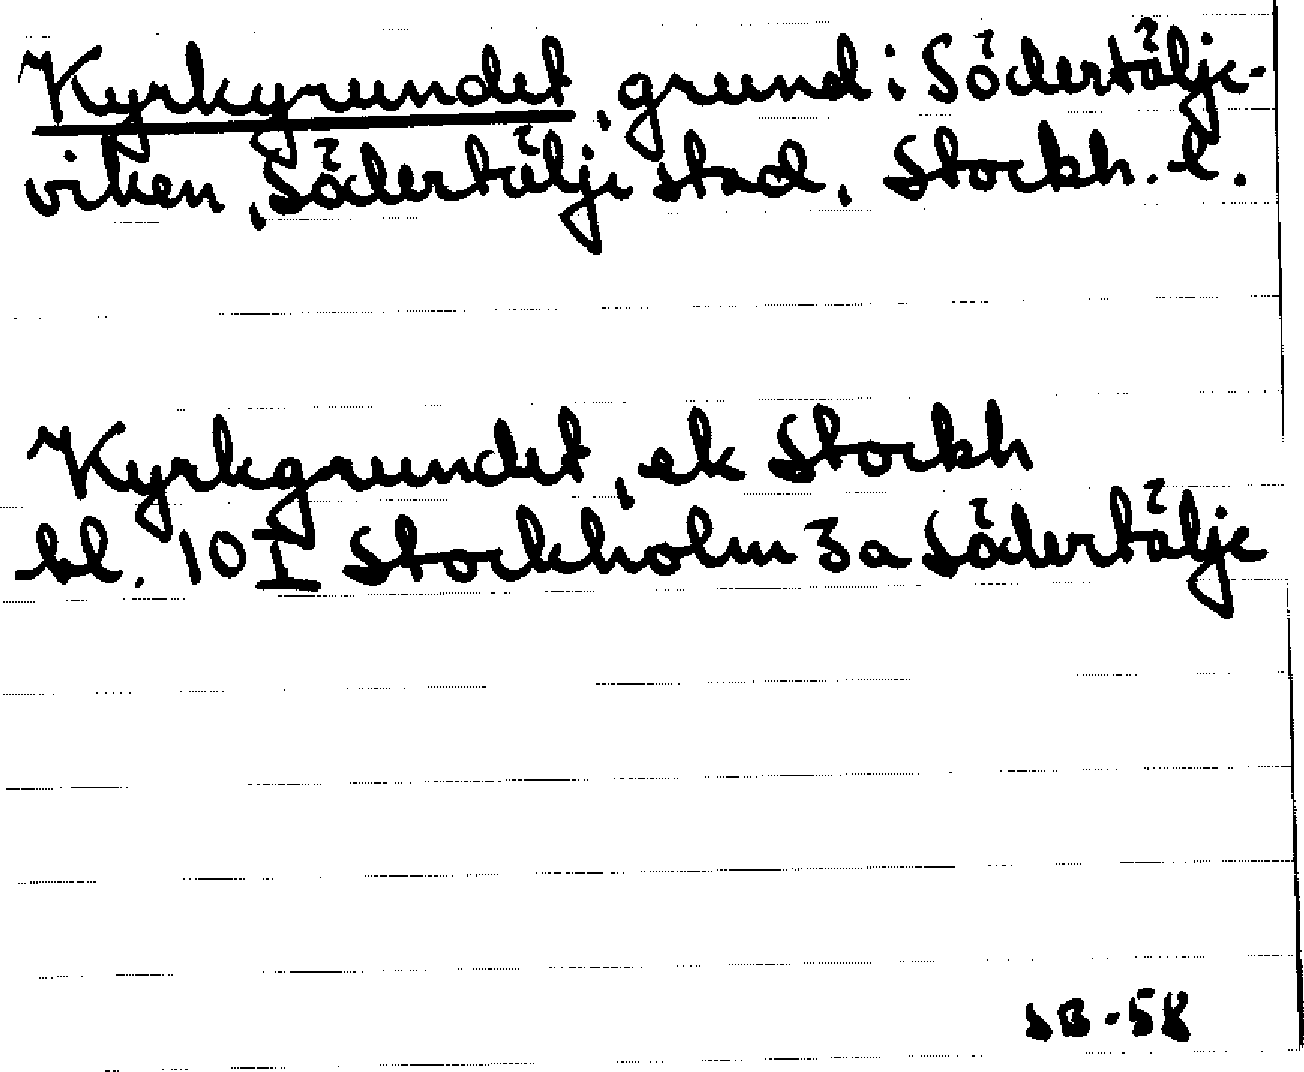 Kyrkgrundet, grund i Södertälje-
viken, Södertälje stad, Stockh. l.
Kyrkgrundet, ek Stockh
bl. 10 I Stockholm 3a Södertälje
SB-58